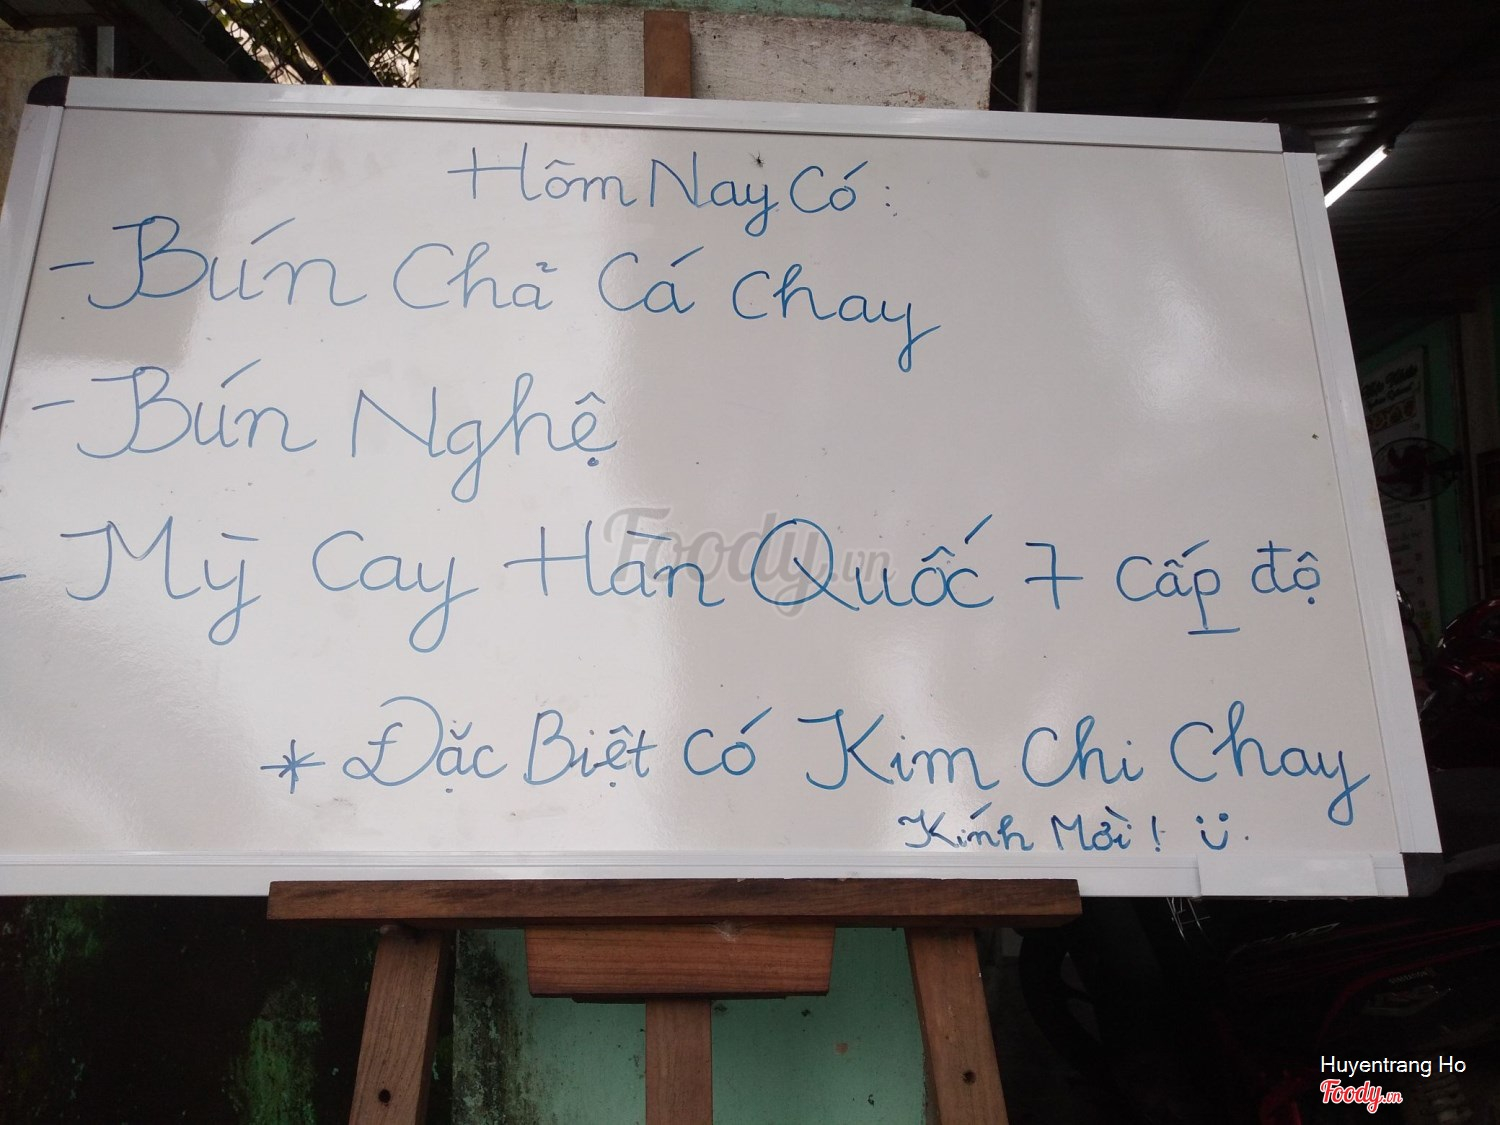 Hôm Nay Có:
- Bún Chả Cá Chay
- Bún Nghệ
- Mỳ Cay Hàn Quốc 7 Cấp độ
* Đặc Biệt Có Kim Chi Chay
Kính Mời! Ü.
Foody.vn
Huyentrang Ho
Foody.vn